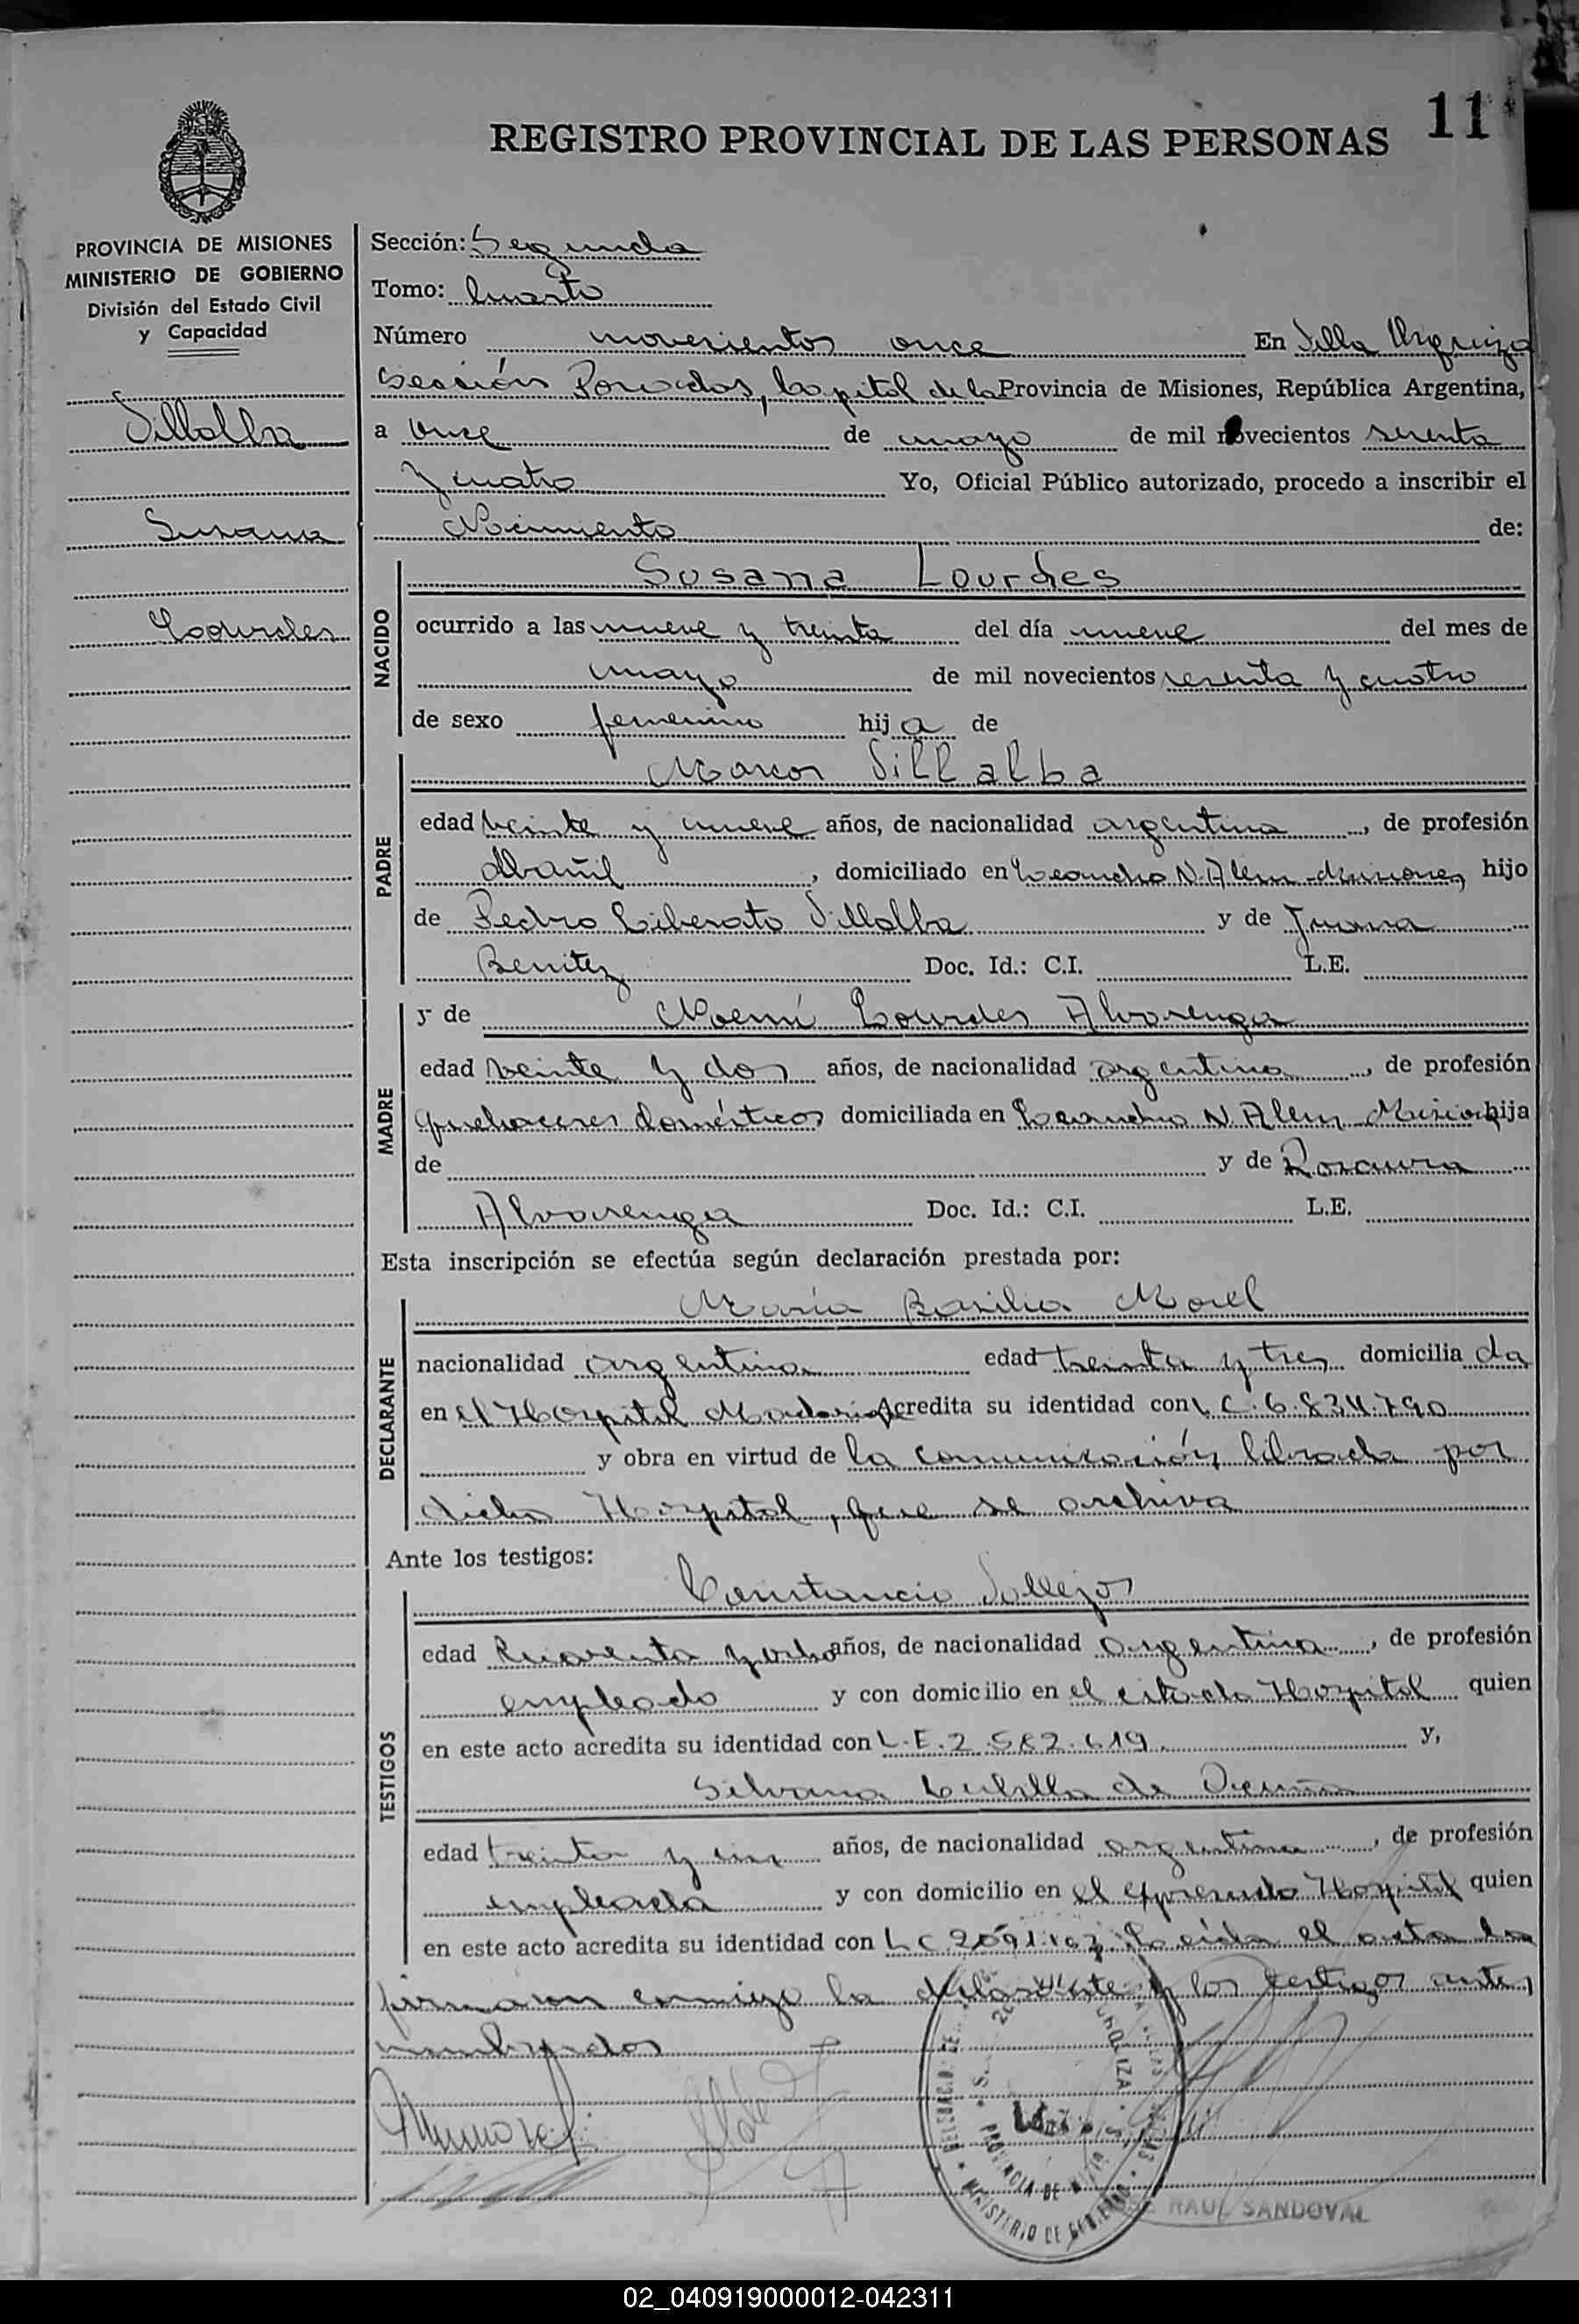 11
REGISTRO PROVINCIAL DE LAS PERSONAS
PROVINCIA DE MISIONES
MINISTERIO DE GOBIERNO
División del Estado Civil
y Capacidad
Villalba
Susana
Lourdes
Sección: Segunda
Tomo: Cuarto
Número novecientos once En Villa Urquiza
Sección Posadas, Capital de la Provincia de Misiones, República Argentina,
a once de mayo de mil novecientos sesenta
y cuatro Yo, Oficial Público autorizado, procedo a inscribir el
Nacimiento de:
NACIDO
Susana Lourdes
ocurrido a las nueve y treinta del día nueve del mes de
mayo de mil novecientos sesenta y cuatro
de sexo femenino hija de
PADRE
Marcos Villalba
edad veinte y nueve años, de nacionalidad argentina, de profesión
Albañil, domiciliado en Leandro N. Alem - Misiones, hijo
de Pedro Liberato Villalba y de Juana
Benitez Doc. Id.: C.I. L.E.
MADRE
y de Noemí Lourdes Alvarenga
edad veinte y dos años, de nacionalidad argentina, de profesión
quehaceres domésticos domiciliada en Leandro N. Alem Misiones hija
de y de Rosaura
Alvarenga Doc. Id.: C.I. L.E.
Esta inscripción se efectúa según declaración prestada por:
DECLARANTE
María Basilia Morel
nacionalidad argentina edad treinta y tres domiciliada
en el Hospital Madariaga Acredita su identidad con L.C. 6.834.790
y obra en virtud de la comunicación librada por
dicho Hospital, que se archiva
Ante los testigos:
TESTIGOS
Constancio Vallejos
edad Cuarenta y ocho años, de nacionalidad argentina, de profesión
empleado y con domicilio en el citado Hospital quien
en este acto acredita su identidad con L.E. 2.582.619 y,
Silvana Cubilla de Acuña
edad treinta y un años, de nacionalidad argentina, de profesión
empleada y con domicilio en el expresado Hospital quien
en este acto acredita su identidad con L C 2091.107. Leída el acta la
firmaron conmigo la declarante y los testigos antes
nombrados
MINISTERIO DE GOBIERNO
PROVINCIA DE MISIONES
RAUL SANDOVAL
02_040919000012-042311